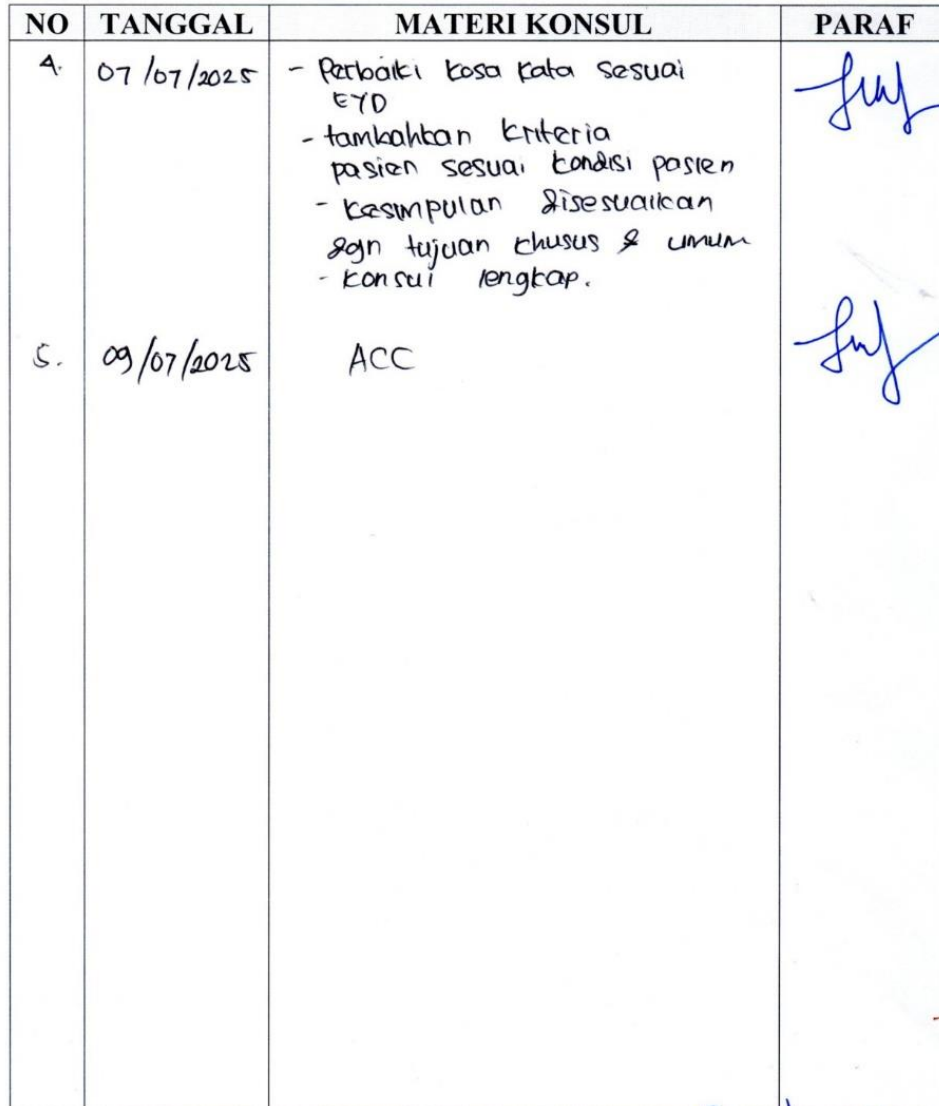 NO TANGGAL MATERI KONSUL PARAF
4. 07/07/2025 - Perbaiki kosa kata sesuai
EYD
- tambahkan kriteria
pasien sesuai kondisi pasien
- kesimpulan disesuaikan
dgn tujuan khusus & umum
- konsul lengkap.
5. 09/07/2025 ACC